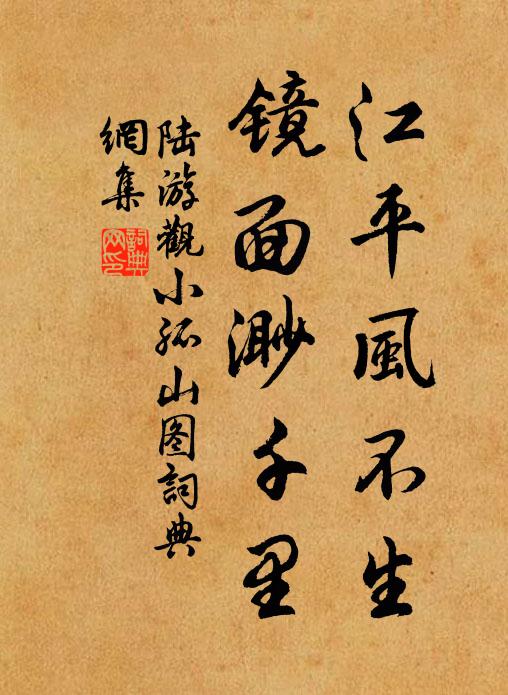 江平風不生
镜面渺千里
陆游觀小孤山图詞典
網集
詞典網印